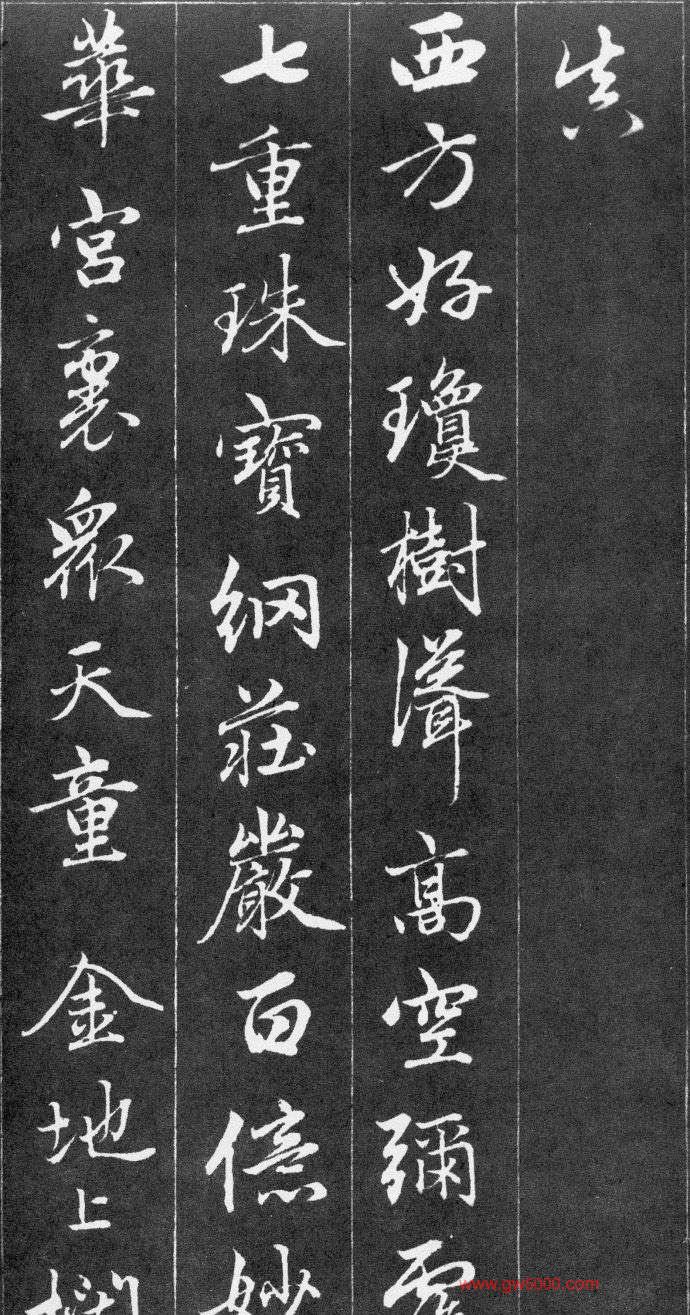 真
西方好瓊樹聳高空彌
七重珠寶網莊嚴百億妙
華宮裏眾天童 金地上
www.gw5000.com